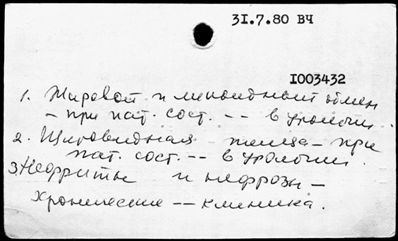 31.7.80 ВЧ
1003432
1. Жировой и липоидный обмен
- при пат. сост. -- в урологии.
2. Щитовидная железа - при
пат. сост. -- в урологии.
3. Нефриты и нефрозы -
Хронические -- клиника.